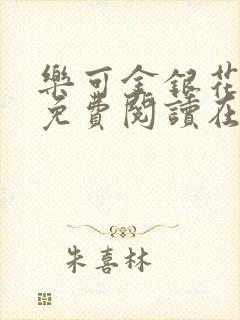 樂可金銀花
免費閱讀在
朱喜林